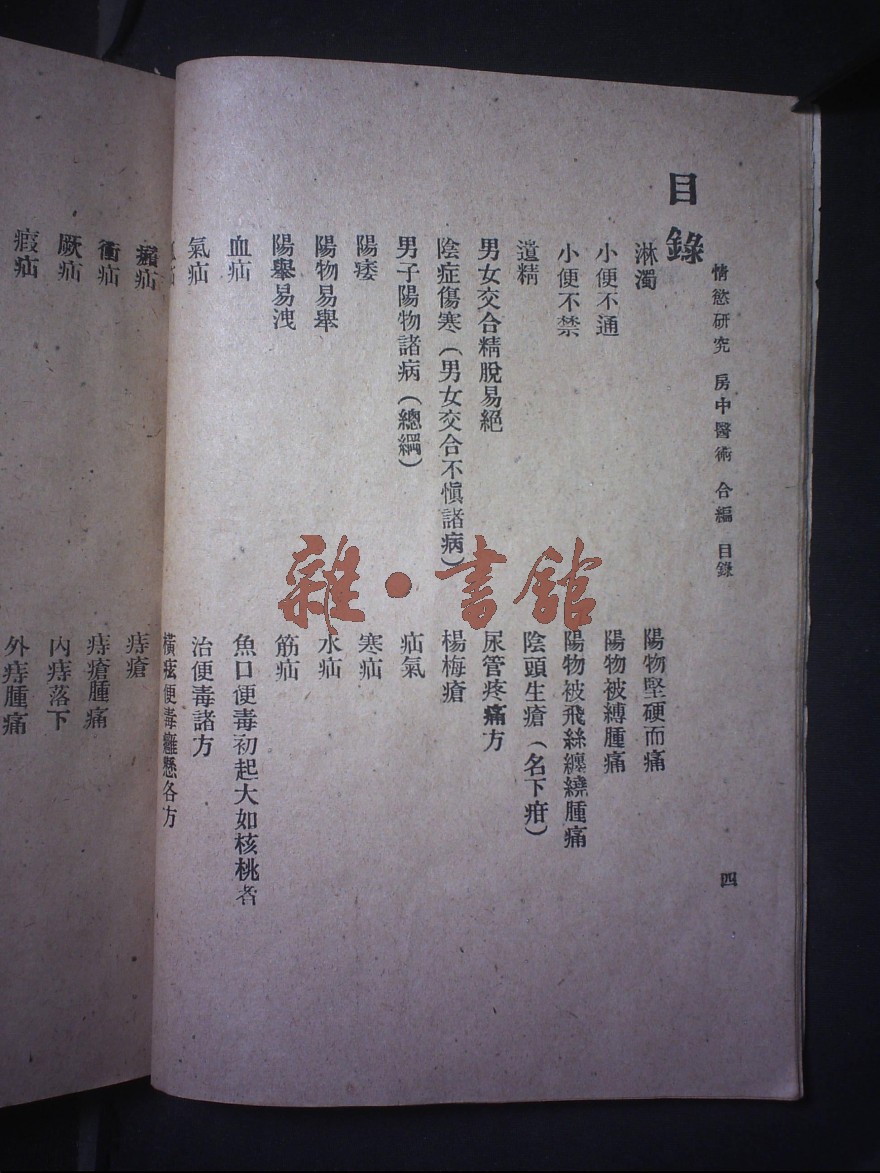 情慾研究 房中醫術 合編 目錄
四
目錄
淋濁
小便不通
小便不禁
遺精
男女交合精脫易絕
陰症傷寒（男女交合不慎諸病）
男子陽物諸病（總綱）
陽痿
陽物易舉
陽舉易洩
血疝
氣疝
陽物堅硬而痛
陽物被縛腫痛
陽物被飛絲纏繞腫痛
陰頭生瘡（名下疳）
尿管疼痛方
楊梅瘡
疝氣
寒疝
水疝
筋疝
魚口便毒初起大如核桃者
治便毒諸方
橫痃便毒癰懸各方
㿗疝
衝疝
厥疝
瘕疝
痔瘡
痔瘡腫痛
內痔落下
外痔腫痛
雜·書館